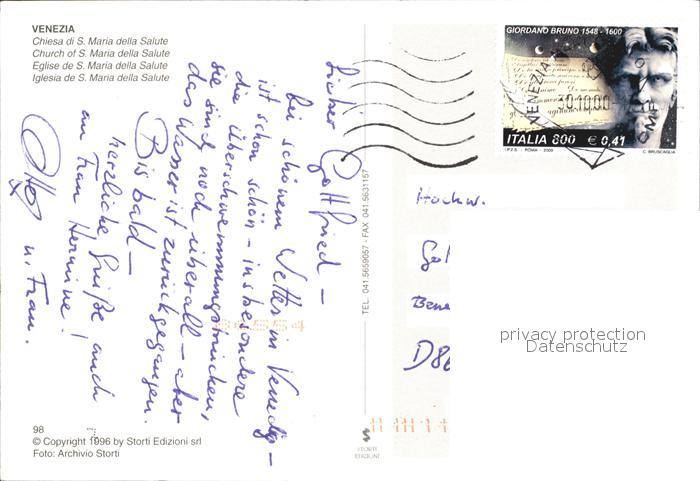 VENEZIA
Chiesa di S. Maria della Salute
Church of S. Maria della Salute
Eglise de S. Maria della Salute
Iglesia de S. Maria della Salute
Lieber Gottfried –
bei schönem Wetter in Venedig –
ist schon schön – insbesondere
die Überschwemmungsbrücken,
sie sind noch überall – aber
das Wasser ist zurückgegangen.
Bis bald –
herzliche Grüße auch
an Frau Hermine!
u. Frau.
98
© Copyright 1996 by Storti Edizioni srl
Foto: Archivio Storti
TEL. 041.5659057 - FAX 041.5631157
STORTI
EDIZIONI
GIORDANO BRUNO 1548 - 1600
VENEZIA
30.10.00
CMP
ITALIA 800 € 0,41
I.P.Z.S. - ROMA - 2000
C. BRUSCAGLIA
Hochw.
Bene
D86
privacy protection
Datenschutz